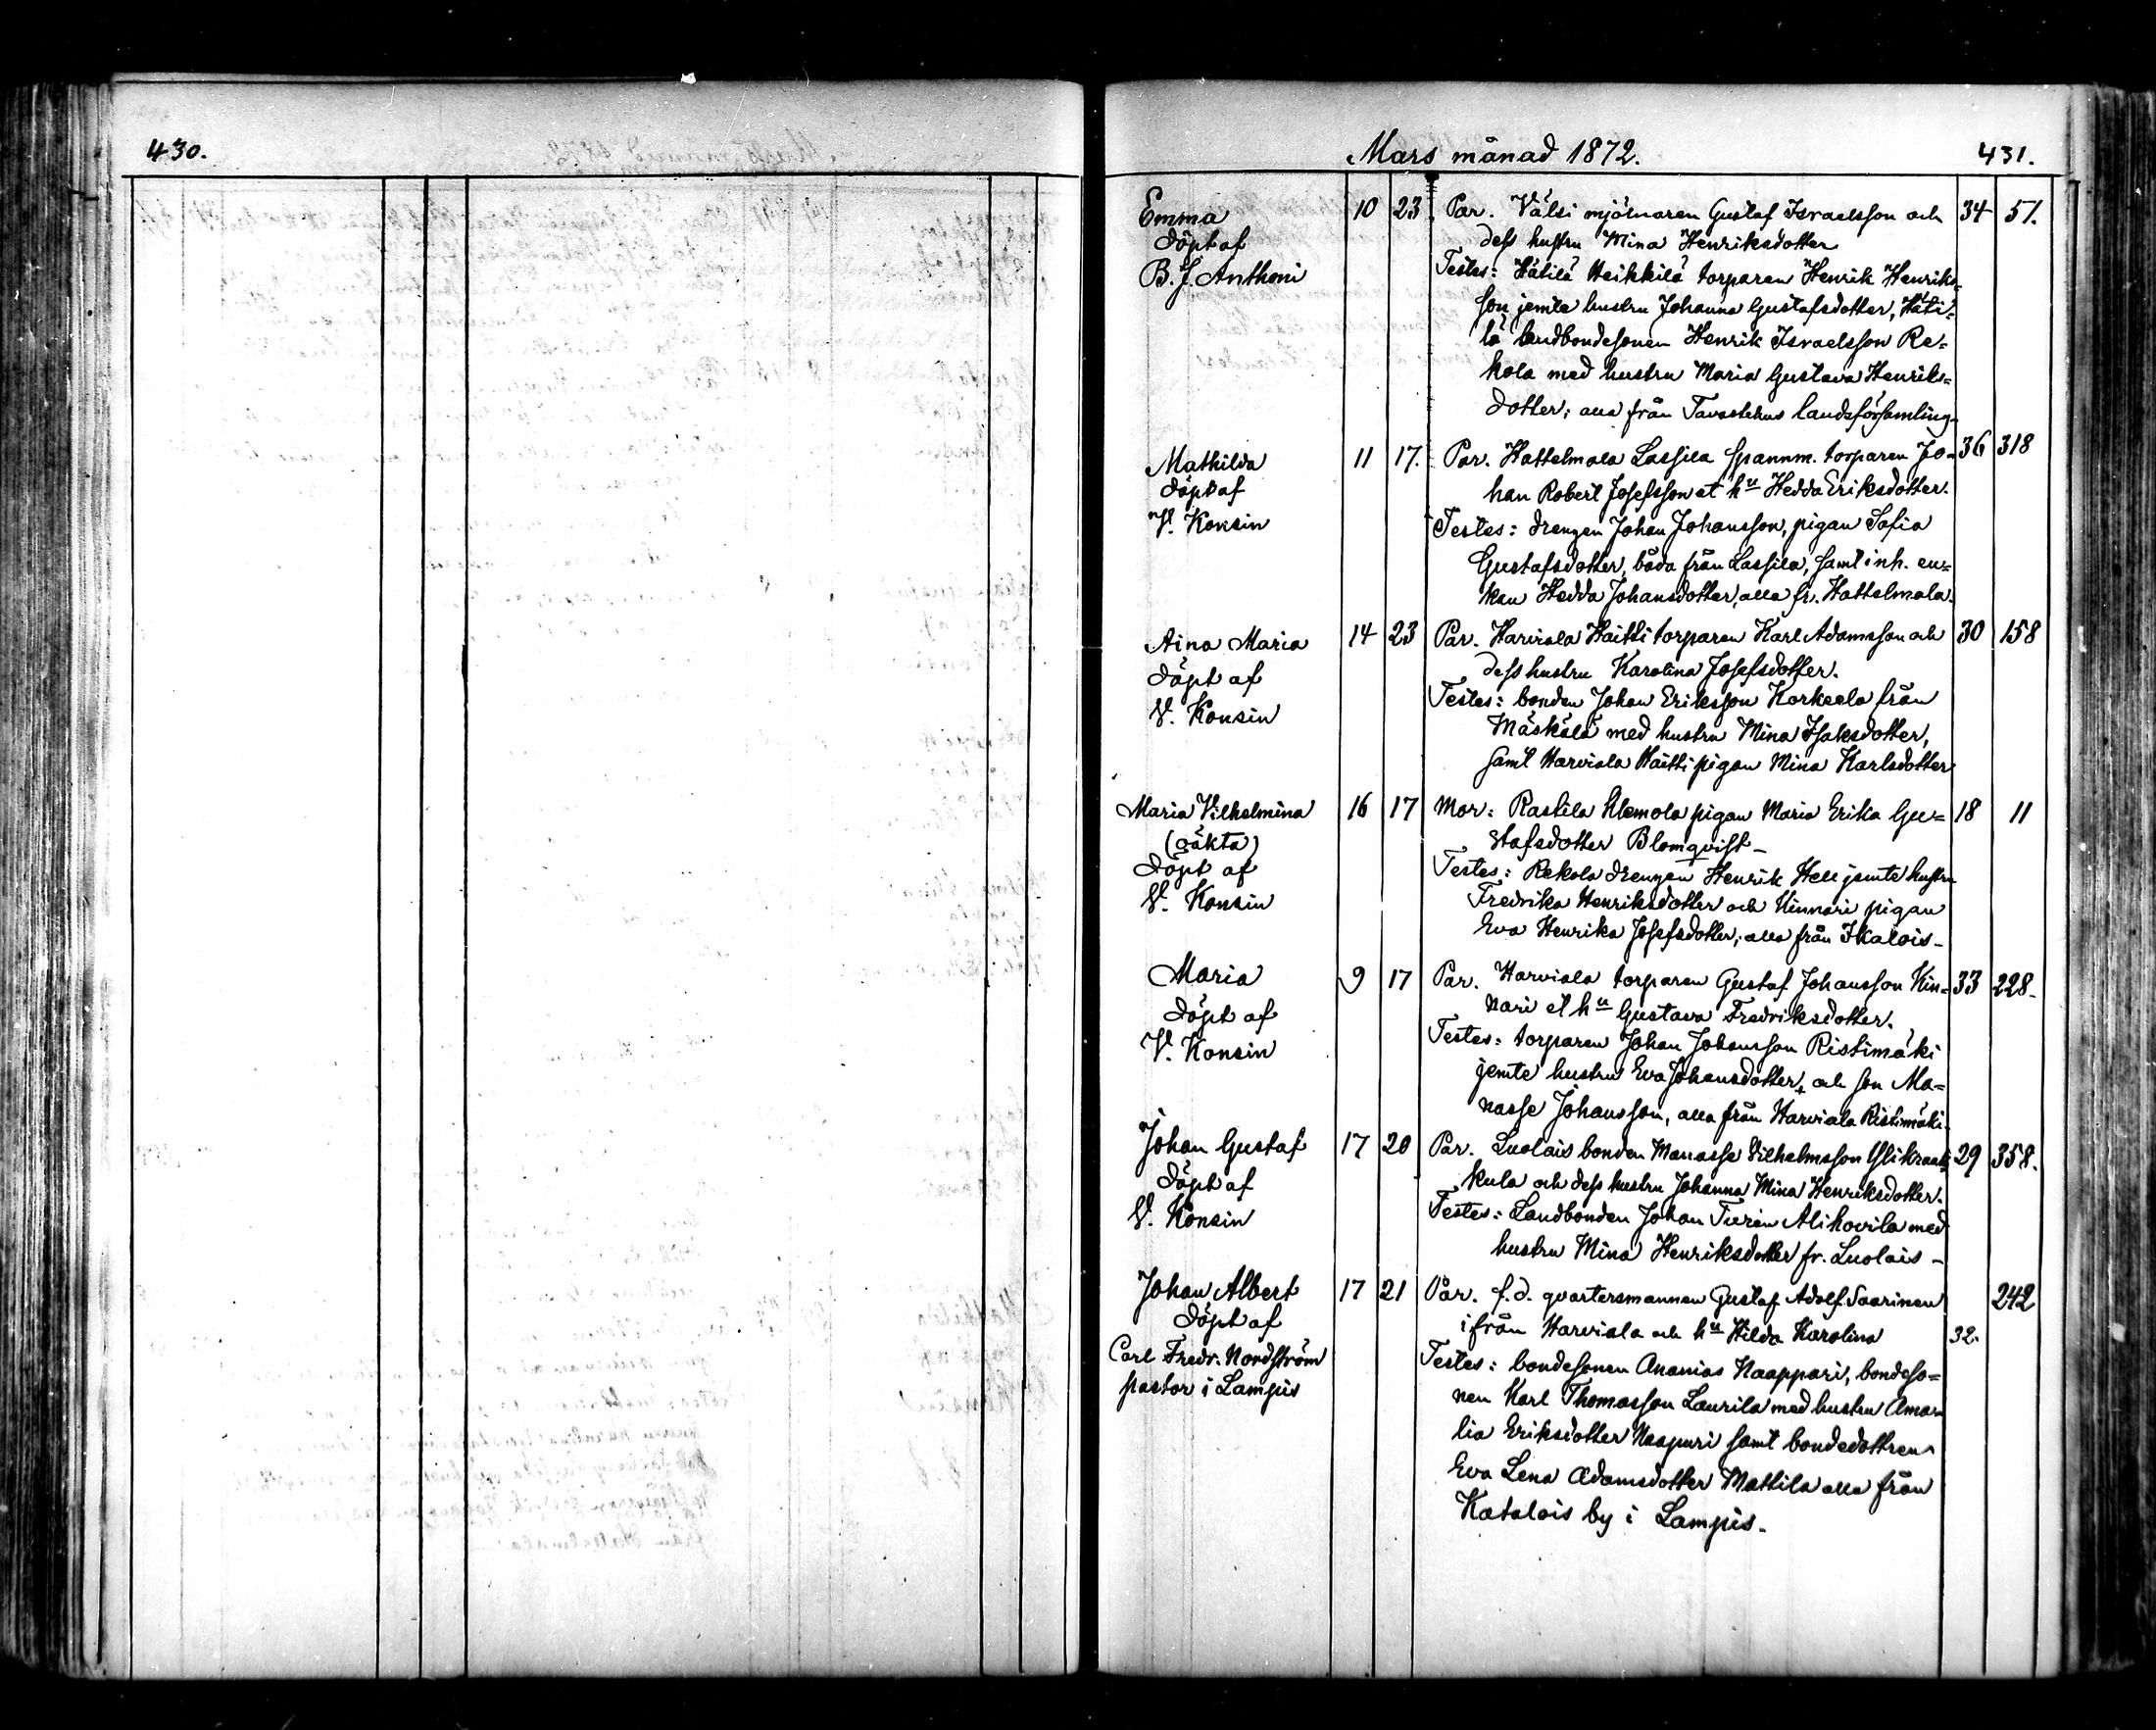 430.
Mars månad 1872. 431.
Emma 10 23 Par. Välsi mjölnaren Gustaf Israelsson och 34 51.
döpt af dess hustru Mina Henriksdotter
B. J. Anthoni Testes: Hätilä Heikkilä torparen Henrik Henriks-
son jemte hustru Johanna Gustafsdotter, Häti-
lä landbondesonen Henrik Israelsson Re-
kola med hustru Maria Gustava Henriks-
dotter; alla från Tavastehus landsförsamling.
Mathilda 11 17. Par. Hattelmala Lassila spannm. torparen Jo- 36 318
döpt af han Robert Josefsson et hu Hedda Eriksdotter.
V. Konsin Testes: drengen Johan Johansson, pigan Sofia
Gustafsdotter, båda från Lassila, samt inh. en-
kan Hedda Johansdotter, alla fr. Hattelmala.
Aina Maria 14 23 Par. Harviala Haitti torparen Karl Adamsson och 30 158
döpt af dess hustru Karolina Josefsdotter.
V. Konsin Testes: bonden Johan Eriksson Korkeela från
Mäskälä med hustru Mina Isaksdotter,
samt Harviala Haitti pigan Mina Karlsdotter
Maria Vilhelmina 16 17 Mor: Rastila Klemola pigan Maria Erika Gu- 18 11
(oäkta) stafsdotter Blomqvist-
döpt af Testes: Rekola drengen Henrik Hell jemte hustru
V. Konsin Fredrika Henriksdotter och Kinnari pigan
Eva Henrika Josefsdotter; alla från Ikalois-
Maria 9 17 Par. Harviala torparen Gustaf Johansson Kin- 33 228.
döpt af nari et hu Gustava Fredriksdotter.
V. Konsin Testes: torparen Johan Johansson Ristimäki
jemte hustru Eva Johansdotter, och son Ma-
nasse Johansson, alla från Harviala Ristimäki.
Johan Gustaf 17 20 Par. Luolais bonden Manasse Vilhelmsson 29 358.
döpt af kula och dess hustru Johanna Mina Henriksdotter.
V. Konsin Testes: Landbonden Johan Turén Alihovila med
hustru Mina Henriksdotter fr. Luolais-
Johan Albert 17 21 Par. f.d. qvartersmannen Gustaf Adolf Saarinen 242
döpt af ifrån Harviala och hu Hilda Karolina 32.
Carl Fredr. Nordström Testes: bondesonen Ananias Naappari, bondeso-
pastor i Lampis nen Karl Thomasson Laurila med hustru Ama-
lia Eriksdotter Naapuri samt bondedottren
Eva Lena Adamsdotter Mattila alla från
Katalois by i Lampis.